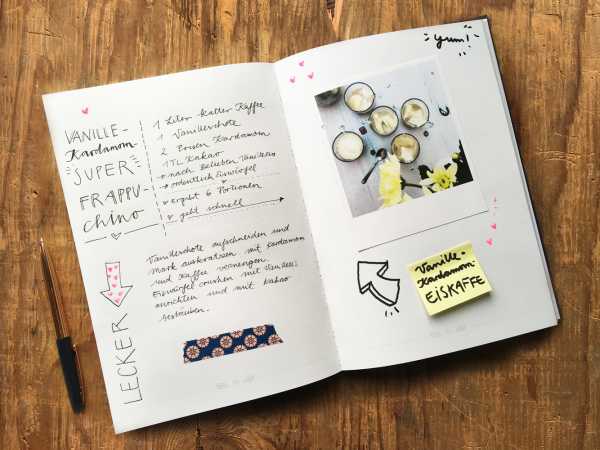 VANILLE-
Kardamom-
SUPER-
FRAPPU-
chino
1 Liter kalter Kaffee
1 Vanilleschote
2 Prisen Kardamom
1 TL Kakao
nach Belieben Vanilleeis
ordentlich Eiswürfel
ergibt 6 Portionen
geht schnell
Vanilleschote aufschneiden und
Mark auskratzen mit Kardamom
und Kaffee vermengen.
Eiswürfel crushen mit Vanilleeis
anrichten und mit Kakao
bestäuben.
LECKER
yum!
Vanille-
Kardamom-
EISKAFFE